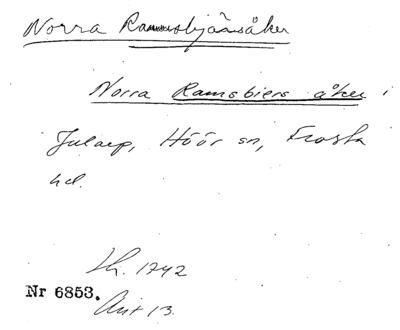 Norra Rammsbjärsåker
Norra Ramsbiers åker i
Jularp, Höör sn, Frosta
hd.
Lh. 1742
Nr 6853.
Akt 13.